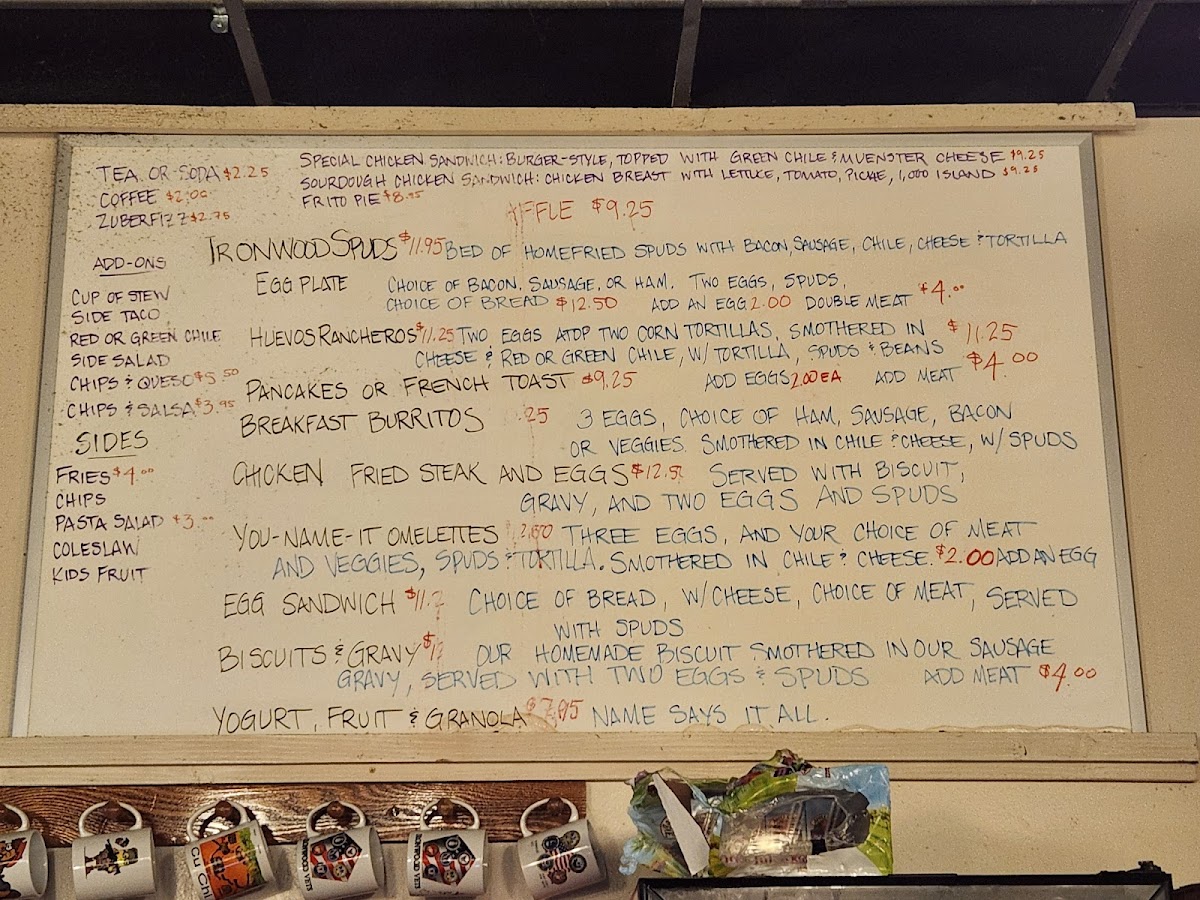 TEA OR SODA $2.25
COFFEE $2.00
ZUBERFIZZ $2.75
SPECIAL CHICKEN SANDWICH: BURGER-STYLE, TOPPED WITH GREEN CHILE & MUENSTER CHEESE $9.25
SOURDOUGH CHICKEN SANDWICH: CHICKEN BREAST WITH LETTUCE, TOMATO, PICKLE, 1,000 ISLAND $9.25
FRITO PIE $8.95
FFLE $9.25
ADD-ONS
CUP OF STEW
SIDE TACO
RED OR GREEN CHILE
SIDE SALAD
CHIPS & QUESO $5.50
CHIPS & SALSA $3.95
SIDES
FRIES $4.00
CHIPS
PASTA SALAD $3.00
COLESLAW
KIDS FRUIT
IRONWOOD SPUDS $11.95 BED OF HOMEFRIED SPUDS WITH BACON, SAUSAGE, CHILE, CHEESE & TORTILLA
EGG PLATE CHOICE OF BACON. SAUSAGE, OR HAM. TWO EGGS, SPUDS,
CHOICE OF BREAD $12.50 ADD AN EGG 2.00 DOUBLE MEAT $4.00
HUEVOS RANCHEROS $11.25 TWO EGGS ATOP TWO CORN TORTILLAS, SMOTHERED IN $11.25
CHEESE & RED OR GREEN CHILE, W/ TORTILLA, SPUDS & BEANS
PANCAKES OR FRENCH TOAST $9.25 ADD EGGS 2.00 EA ADD MEAT $4.00
BREAKFAST BURRITOS 25 3 EGGS, CHOICE OF HAM, SAUSAGE, BACON
OR VEGGIES. SMOTHERED IN CHILE & CHEESE, W/ SPUDS
CHICKEN FRIED STEAK AND EGGS $12.5 SERVED WITH BISCUIT,
GRAVY, AND TWO EGGS AND SPUDS
YOU-NAME-IT OMELETTES THREE EGGS, AND YOUR CHOICE OF MEAT
AND VEGGIES, SPUDS & TORTILLA. SMOTHERED IN CHILE & CHEESE. $2.00 ADD AN EGG
EGG SANDWICH $11. CHOICE OF BREAD, W/CHEESE, CHOICE OF MEAT, SERVED
WITH SPUDS
BISCUITS & GRAVY $1 OUR HOMEMADE BISCUIT SMOTHERED IN OUR SAUSAGE
GRAVY, SERVED WITH TWO EGGS & SPUDS ADD MEAT $4.00
YOGURT, FRUIT & GRANOLA $7.95 NAME SAYS IT ALL.